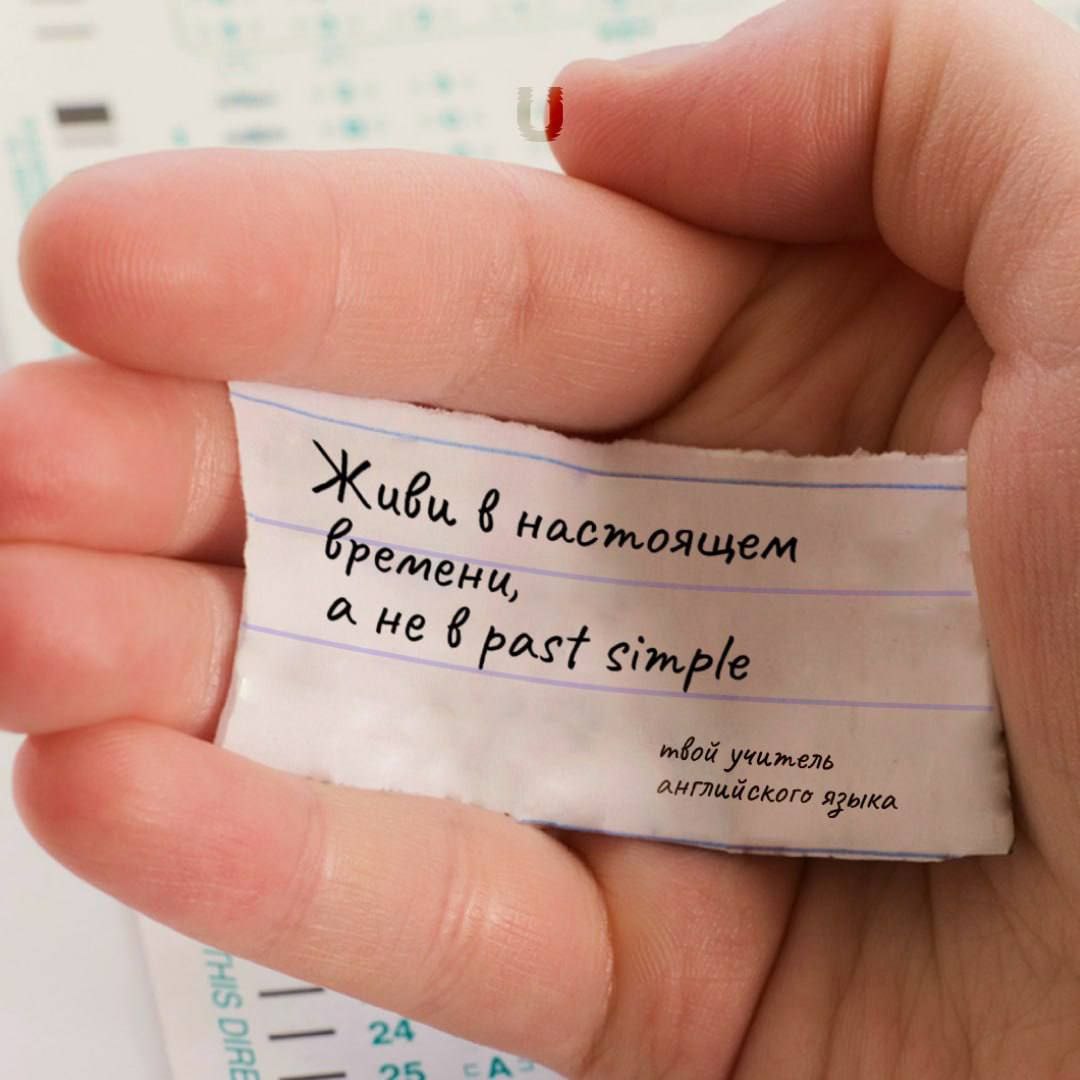 U
Живи в настоящем
времени,
а не в past simple
твой учитель
английского языка
THIS DIRE
24
25 A